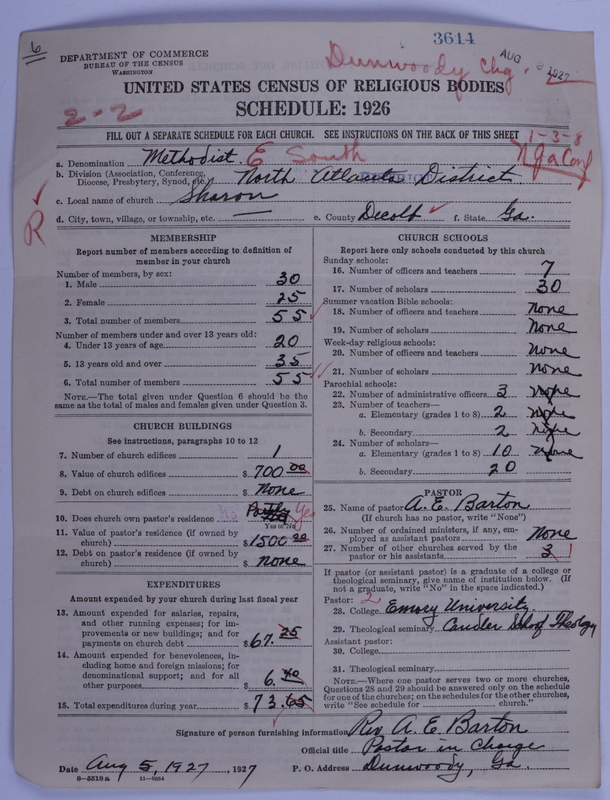 6
3614
DEPARTMENT OF COMMERCE
BUREAU OF THE CENSUS
WASHINGTON
Dunwoody Chg.
AUG 2 1927
UNITED STATES CENSUS OF RELIGIOUS BODIES
2-2
SCHEDULE: 1926
FILL OUT A SEPARATE SCHEDULE FOR EACH CHURCH. SEE INSTRUCTIONS ON THE BACK OF THIS SHEET
1-3-8
N Ga Conf
a. Denomination Methodist. E South
b. Division (Association, Conference, Diocese, Presbytery, Synod, etc.) North Atlanta District
c. Local name of church Sharon
R
d. City, town, village, or township, etc. — e. County Decalb f. State Ga.
MEMBERSHIP
Report number of members according to definition of
member in your church
Number of members, by sex:
1. Male 30
2. Female 25
3. Total number of members 55
Number of members under and over 13 years old:
4. Under 13 years of age 20
5. 13 years old and over 35
6. Total number of members 55
NOTE.—The total given under Question 6 should be the
same as the total of males and females given under Question 3.
CHURCH BUILDINGS
See instructions, paragraphs 10 to 12
7. Number of church edifices 1
8. Value of church edifices $ 700 00
9. Debt on church edifices $ None
10. Does church own pastor's residence Partly Yes
Yes or No
11. Value of pastor's residence (if owned by
church) $ 1500 00
12. Debt on pastor's residence (if owned by
church) $ None
EXPENDITURES
Amount expended by your church during last fiscal year
13. Amount expended for salaries, repairs,
and other running expenses; for im-
provements or new buildings; and for
payments on church debt $ 67. 25
14. Amount expended for benevolences, in-
cluding home and foreign missions; for
denominational support; and for all
other purposes $ 6. 40
15. Total expenditures during year $ 73.65
CHURCH SCHOOLS
Report here only schools conducted by this church
Sunday schools:
16. Number of officers and teachers 7
17. Number of scholars 30
Summer vacation Bible schools:
18. Number of officers and teachers None
19. Number of scholars None
Week-day religious schools:
20. Number of officers and teachers None
21. Number of scholars None
Parochial schools:
22. Number of administrative officers 3 None
23. Number of teachers—
a. Elementary (grades 1 to 8) 2 None
b. Secondary 2 None
24. Number of scholars—
a. Elementary (grades 1 to 8) 10 None
b. Secondary 20
PASTOR
25. Name of pastor A. E. Barton
(If church has no pastor, write "None")
26. Number of ordained ministers, if any, em-
ployed as assistant pastors None
27. Number of other churches served by the
pastor or his assistants 3 1
If pastor (or assistant pastor) is a graduate of a college or
theological seminary, give name of institution below. (If
not a graduate, write "No" in the space indicated.)
Pastor: 2
28. College Emory University.
29. Theological seminary Candler School Theology
Assistant pastor:
30. College
31. Theological seminary
NOTE.—Where one pastor serves two or more churches,
Questions 28 and 29 should be answered only on the schedule
for one of the churches; on the schedules for the other churches,
write "See schedule for church."
Signature of person furnishing information Rev A. E. Barton
Official title Pastor in Charge
Date Aug 5, 1927, 1927 P. O. Address Dunwoody, Ga.
8-5518a 11-9664